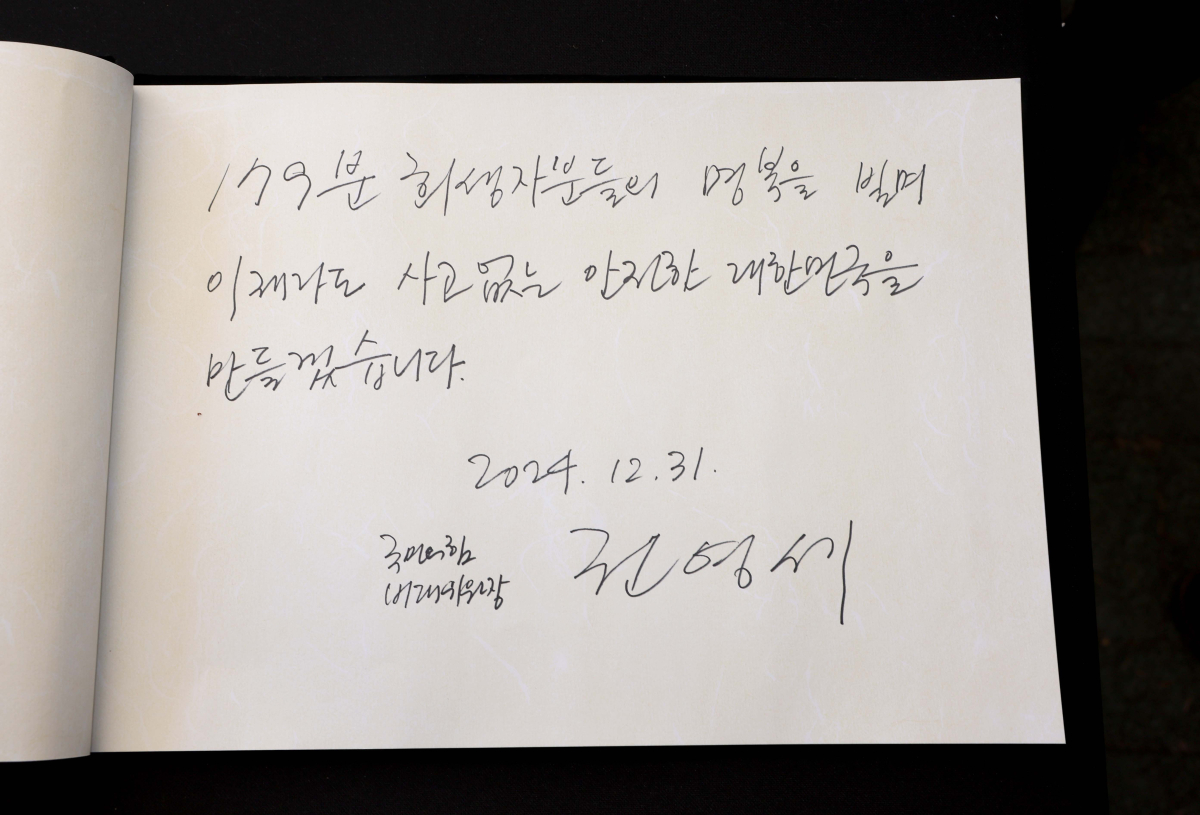 179분 희생자분들의 명복을 빌며
이제라도 사고없는 안전한 대한민국을
만들겠습니다.
2024. 12. 31.
국민의힘
비대위원장
권영세